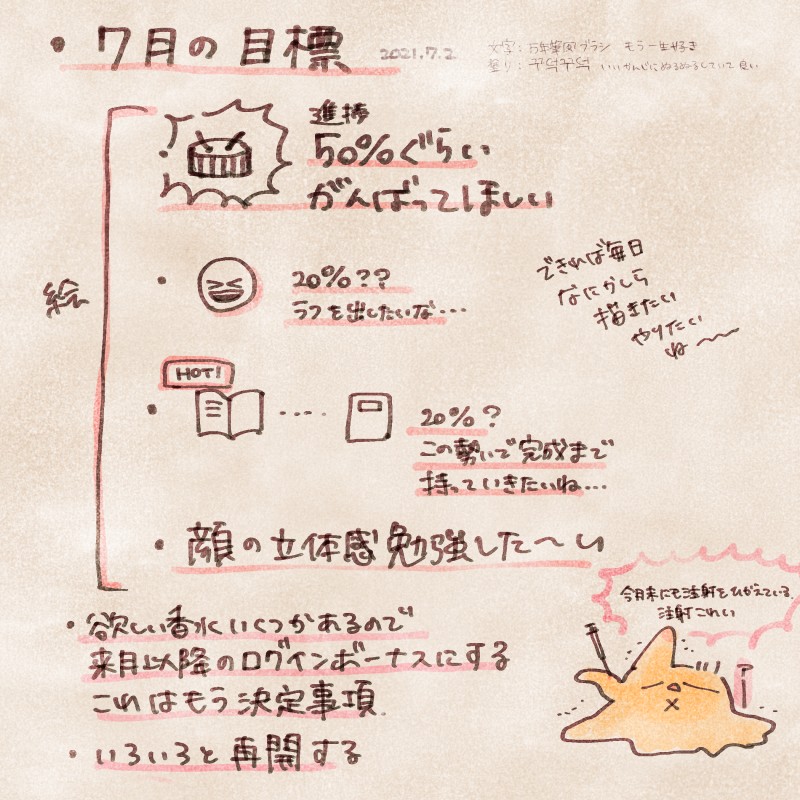 ・7月の目標
2021.7.2
文字：万年筆風ブラシ もう一生好き
塗り：꾸덕꾸덕 いいかんじにぬるぬるしていて良い
絵
進捗
50%ぐらい
がんばってほしい
・
20%??
ラフを出したいな…
できれば毎日
なにかしら
描きたい
やりたい
ね〜
HOT!
・
20%?
この勢いで完成まで
持っていきたいね…
・顔の立体感勉強した〜い
・欲しい香水いくつかあるので
来月以降のログインボーナスにする
これはもう決定事項
・いろいろと再開する
今月末にも注射をひかえている
注射こわい